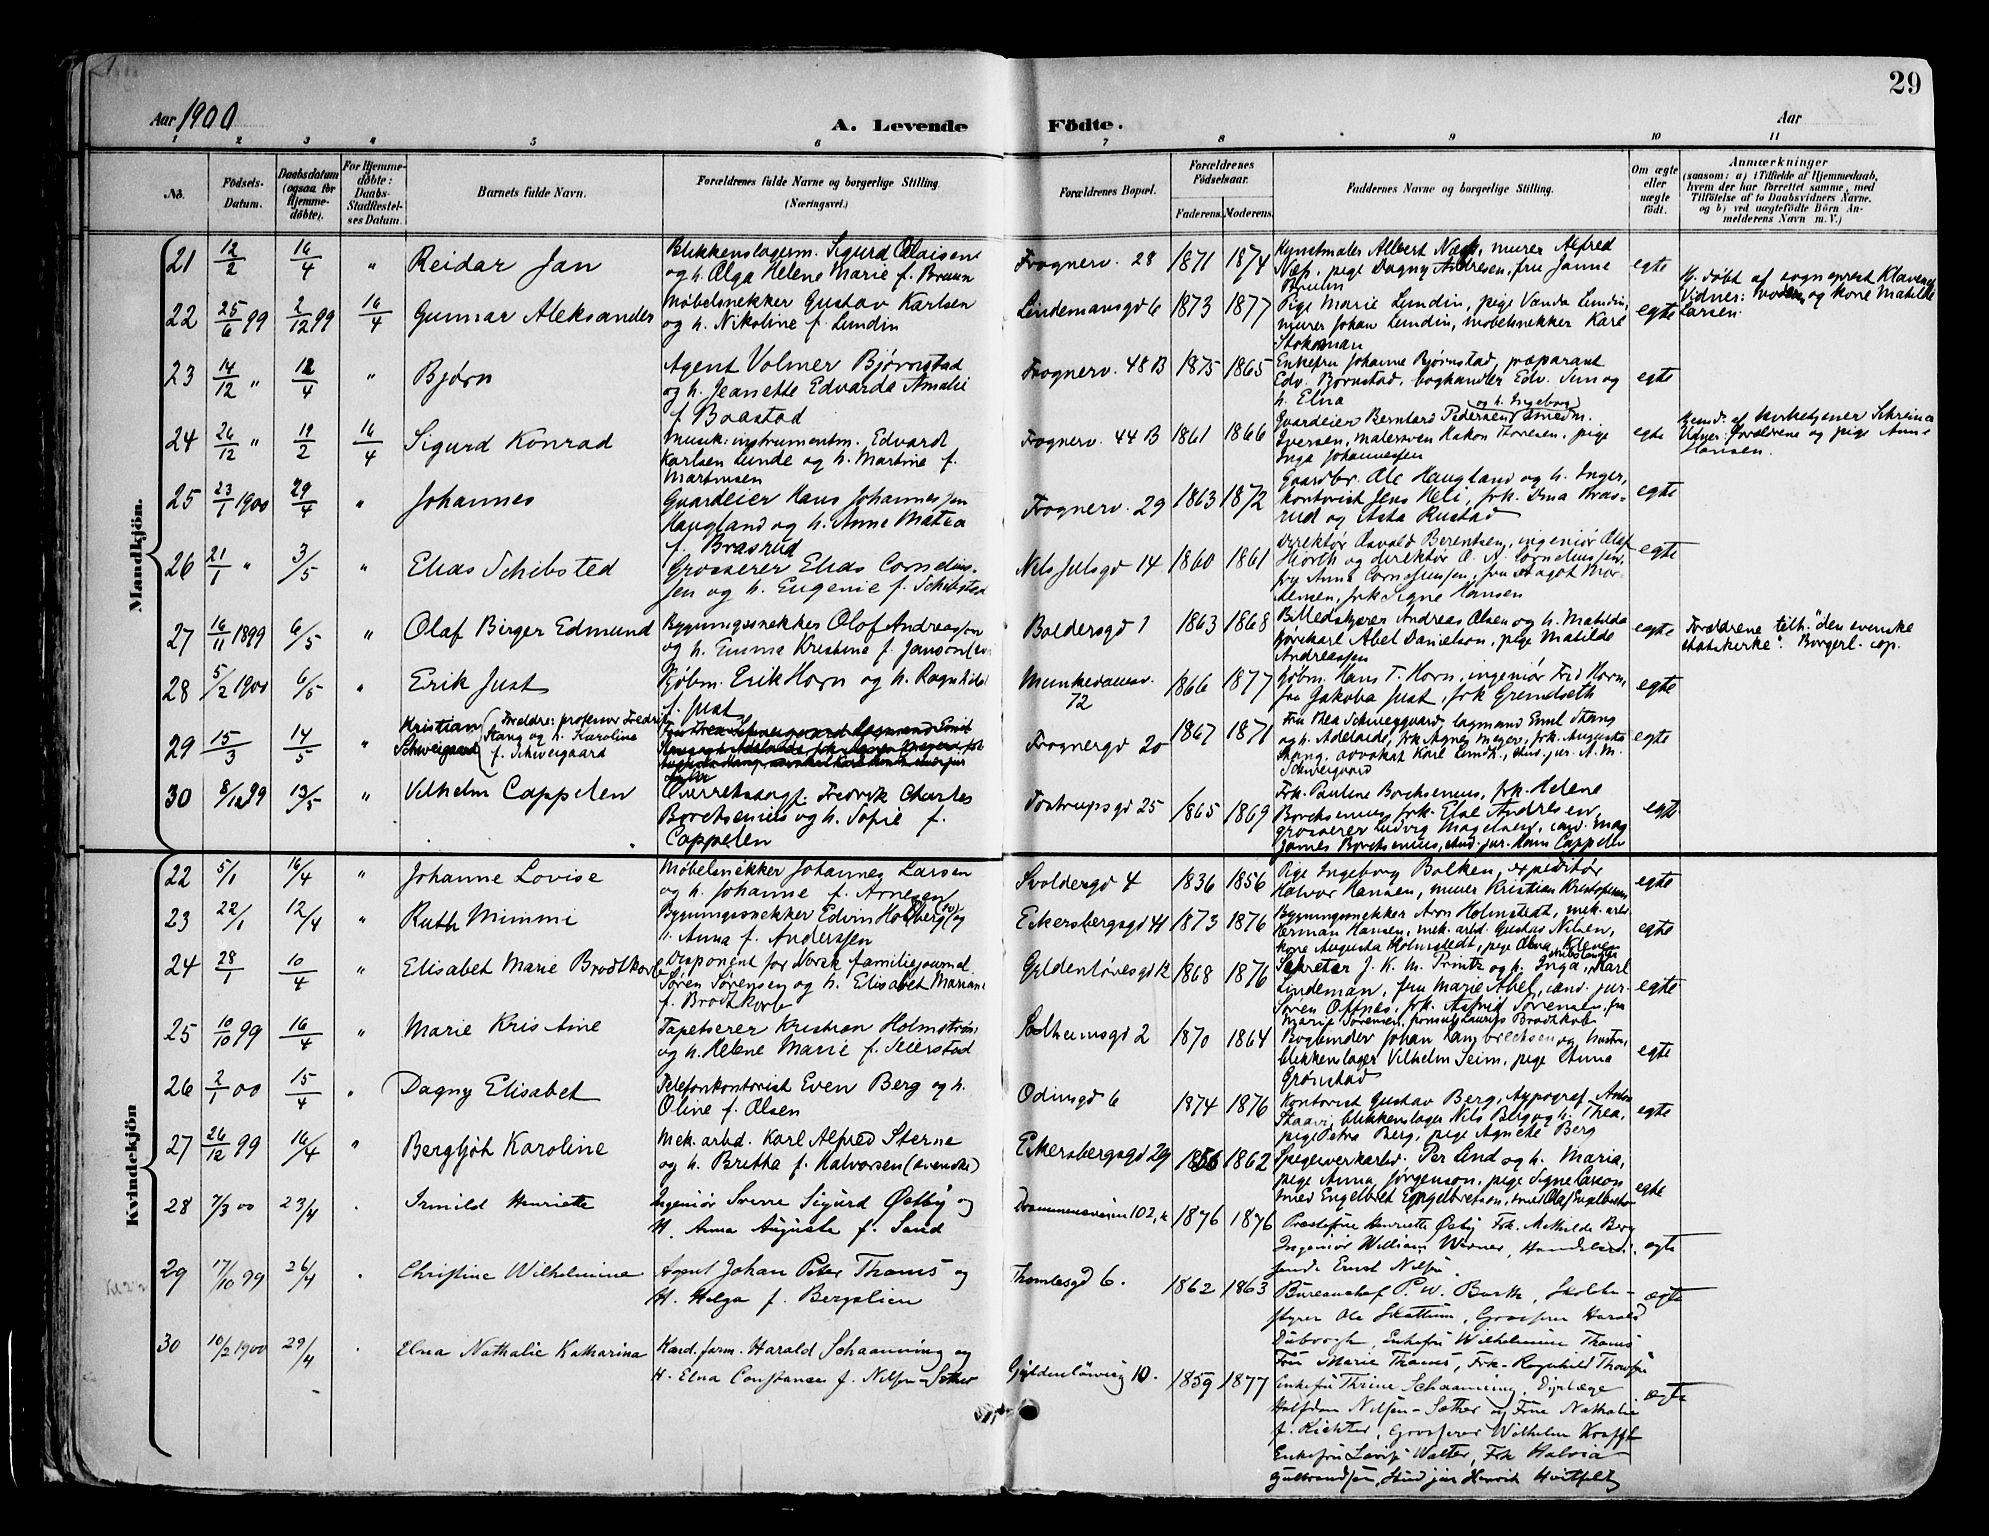 29
Aar 1900
A. Levende Födte.
Aar
1 2 3 4 5 6 7 8 9 10 11
No.
Födsels-Datum.
Daabsdatum (ogsaa for Hjemmedöbte).
For Hjemmedöbte: Daabs-Stadfæstelses Datum.
Barnets fulde Navn.
Forældrenes fulde Navne og borgerlige Stilling. (Næringsvei.)
Forældrenes Bopæl.
Forældrenes Födselsaar.
Faderens. Moderens.
Faddernes Navne og borgerlige Stilling.
Om ægte eller uægte födt.
Anmærkninger
(saasom: a) i Tilfælde af Hjemmedaab,
hvem der har forrettet samme, med
Tilföielse af to Daabsvidners Navne,
og b) ved uægtefödte Börn Anmelderens Navn m. V.)
Mandkjön.
21 12/2 16/4 " Reidar Jan
Blikkenslagerm. Sigurd Olaisen
og h. Olga Helene Marie f. Bruun
Frognerv. 28 1871 1874
Kunstmaler Albert Næp, murer Alfred
Næp, pige Dagny Andresen, fru Janne
Bruun
egte
22 25/6 99 2/12 99 16/4 Gunnar Aleksander
Møbelsnekker Gustav Karlsen
og h. Nikoline f. Lundin
Lindemansgd 6 1873 1877
Pige Marie Lundin, pige Vanda Lundin,
murer Johan Lundin, møbelsnekker Karl
egte
Hj. døbt af sogneprest Klavenes
Vidner: moderen og kone Matilde
Larsen.
23 14/12 " 12/4 " Bjørn
Agent Volmer Bjørnstad
og h. Jeanette Edvarda Amalie
f. Baastad
Frognerv. 48 B 1875 1865
Enkefru Johanne Bjørnstad, præparant
Edv. Bjørnstad, boghandler Edv. og
h. Elna
egte
24 26/12 " 19/2 16/4 Sigurd Konrad
Musik: instrumentm. Edvard
Karlsen Lunde og h. Martine f.
Martinsen
Frognerv. 44 B 1861 1866
Gvardeier Bernhard Pedersen og h. Ingeborg, smedm.
Iversen, malersven Hakon Thoresen, pige
Inga Johannessen
egte
Vidner: forældrene og pige Anne
Hansen.
25 23/1 1900 29/4 " Johannes
Gvardeier Hans Johannessen
Haugland og h. Anne Matea
f. Brasrud
Frognerv. 29 1863 1872
Gvardbr. Ole Haugland og h. Inger,
kontorist Jens Heli, frk. Dina Brasrud
og Asta Rustad
egte
26 21/1 " 3/5 " Elias Schibsted
Grosserer Elias Corneliussen
og h. Eugenie f. Schibsted
Nils Julsgd 14 1860 1861
Direktør Osvald Berentsen, ingeniør Olaf
Hiorth og direktør O. A. Corneliussen,
fru Anna Corneliussen, fru Aagot Mortensen,
frk Signe Hansen
egte
27 16/11 1899 6/5 " Olaf Birger Edmund
Bygningssnekker Olof Andreassen
og h. Emma Kristina f. Janson
Baldersgd 1 1863 1868
Billedskjærer Andreas Olsen og h. Matilda
kjørekarl Abel Danielson, pige Matilde
Andreassen
egte
Forældrene tilh. "den svenske
statskirke". Borgerl. cop.
28 5/2 1900 6/5 " Erik Just
Kjøbm. Erik Horn og h. Ragnhild
f. Just
Munkedamsv. 72 1866 1877
Kjøbm. Hans T. Horn, ingeniør Frid Horn,
fru Jakoba Just, frk Grindseth
egte
29 15/3 14/5 " Kristian Schweigaard
Forældre: professor Fredrik
Stang og h. Karoline
f. Schweigaard
Frognergd 20 1867 1871
Fru Thea Schweigaard, lagmand Emil Stang
og h. Adelaide, frk Agnes Meyer, frk. Augusta
Stang, advokat Karl Lundh, stud. jur. A. M.
Schweigaard
egte
30 8/12 99 13/5 " Vilhelm Cappelen
Overretssagf. Fredrik Charles
Borchsenius og h. Sofie f.
Cappelen
Tostrupsgd 25 1865 1869
Frk. Pauline Borchsenius, frk. Helene
Borchsenius, frk. Else Andresen,
grosserer Ludvig Magelsen, cand. mag
James Borchsenius, stud. jur. Hans Cappelen
egte
Kvindekjön
22 5/1 16/4 " Johanne Lovise
Møbelsnekker Johannes Larsen
og h. Johanne f. Arnesen
Svoldersgd 4 1836 1856
Pige Ingeborg Bolken, expeditør
Halvor Hansen, murer Kristian Kristofersen
egte
23 22/1 12/4 " Ruth Mimmi
Bygningssnekker Edvin Holberg (sv) og
h. Anna f. Anderssen
Eckersbergsgd 41 1873 1876
Bygningssnekker Aron Holmstedt, mek. arb.
Herman Hansen, mek. arb. Gustav Nilsen,
kone Augusta Holmstedt, pige Olava Kleven
egte
24 28/1 10/4 " Elisabet Marie Brodtkorb
Disponent for Norsk familiejournal
Søren Sørensen og h. Elisabet Mariane
f. Brodtkorb
Gyldenløvesgd 12 1868 1876
Sekretær J. K. M. Printz og h. Inga, Karl
Lindeman, fru Marie Abel, cand. jur.
Søren Oftnæs, frk. Astrid Sørensen, fru
Marie Sørensen, Laurits Brodtkorb
egte
25 10/10 99 16/4 " Marie Kristine
Tapetserer Kristian Holmstrøm
og h. Helene Marie f. Seierstad
Solheimsgd 2 1870 1864
Bogbinder Johan Langbrechsen og hustru
blikkenslager Vilhelm Seim, pige Anna
Grønstad
egte
26 2/1 00 15/4 " Dagny Elisabet
Telefonkontorist Even Berg og h.
Oline f. Olsen
Odinsgd 6 1874 1876
Kontorist Gustav Berg, typograf Anton
blikkenslager Nils Berg og h. Thea,
pige Petra Berg, pige Agnete Berg
egte
27 26/12 99 16/4 " Bergljot Karoline
Mek. arbd. Karl Alfred Sterne
og h. Britta f. Halvorsen (svenske)
Eckersbergsgd 29 1856 1862
Spigerverkarbd. Per Lind og h. Maria,
pige Anna Jørgenson, pige Signe Larson
smed Engelbret Engelbretson, smed Olaf Engelbretson
egte
28 7/3 00 23/4 Irmild Henriette
Ingeniør Sverre Sigurd Østby og
H. Anna Augusta f. Sand
Drammensveien 102, 1876 1876
Præstefrue Henriette Østby Frk. Mathilde Berg
Ingeniør William Werner,
Ernst Nilsen
ægte
29 17/10 99 26/4 Christine Wilhelmine
Agent Johan Peter Thams og
H. Helga f. Bergslien
Thomlesgd 6. 1862 1863
Bureauchef P. W. Bugge, Skolebestyrer
Ole Skattum, Grosserer Harald
Dubourgh, Enkefru Wilhelmine Thams
Fru Marie Thams, Frk. Ragnhild
ægte
30 10/2 1900 29/4 Elna Nathalie Katharina
Kand. farm. Harald Schaanning og
H. Elna Constance f. Nilsen-Sæther
Gyldenløvesg 10. 1859 1877
Enkefru Thrine Schaanning, Dyrlæge
Halfdan Nilsen-Sæther og Frue Nathalie
f. Richter, Grosserer Wilhelm
Enkefru Lovise Walter, Frk Halvia
Gulbrandsen, Stud jur Henrik Hvitfeldt
ægte